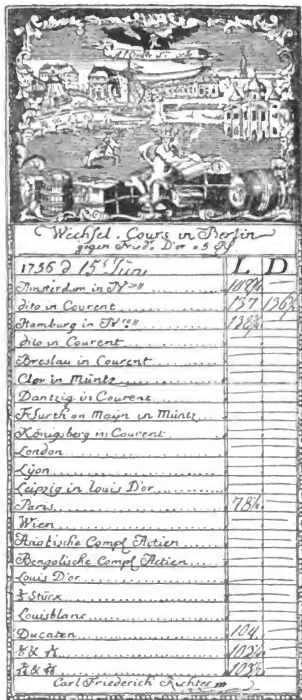 Wechsel-Cours in Berlin
gegen Fried. D'or à 5
1756 d 15 Jun. L D
Amsterdam in
dito in Courent 137
Hamburg in
dito in Courent
Breslau in Courent
Clev in Müntz
Dantzig in Courent
Ffurth an Mayn in Müntz
Königsberg in Courent
London
Lÿon
Leipzig in Louis D'or
Paris
Wien
Asiatische Compl Actien
Bengalische Compl Actien
Louis D'or
Stücx
Louisblanc
Ducaten 104
Carl Friederich Richter